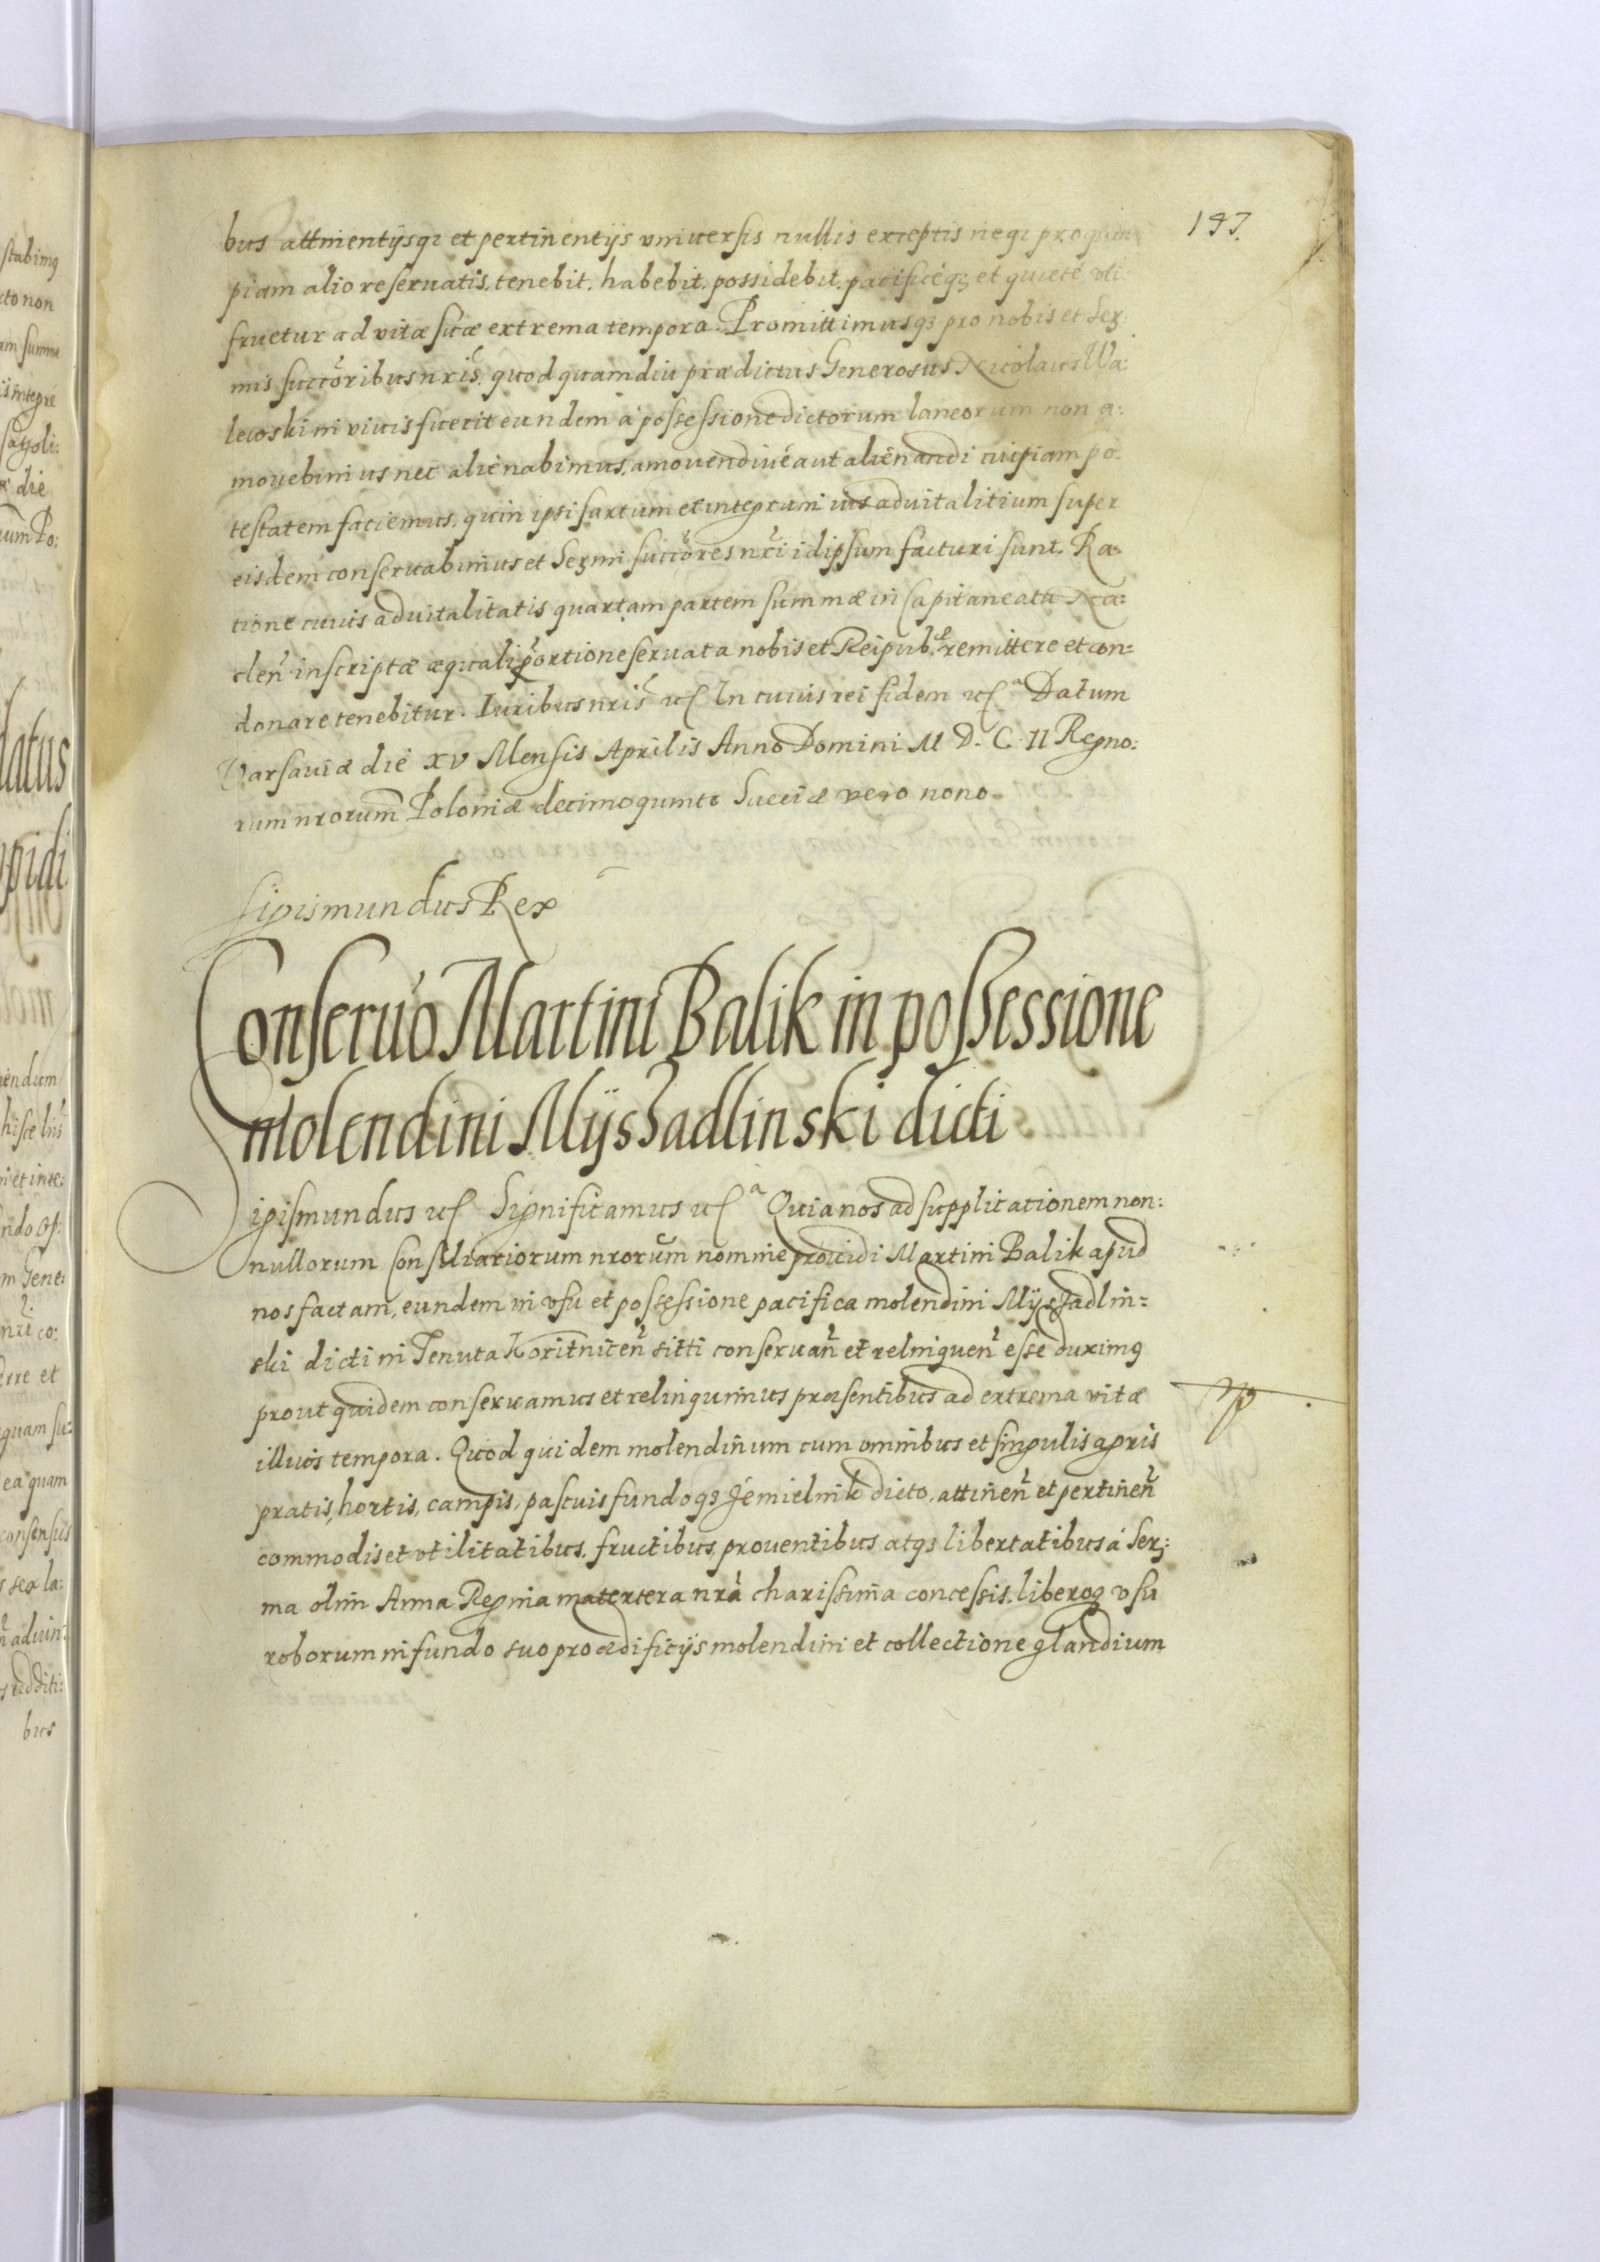 197.
bus attinentijsq3 et pertinentijs vniuersis nullis exceptis neq3 pro
piam alio reseruatis, tenebit, habebit, possidebit, pacificéq3 et quieté vti
fruetur ad vitæ suæ extrema tempora. Promittimusq3 pro nobis et Ser:
mis succōribus nris, quod quamdiu prædictus Generosus Nicolaus Wa:
lewoski in viuis fuerit eundem á possessione dictorum laneorum non a:
mouebimus nec alienabimus, amouendiué aut alienandi cuipiam po:
testatem faciemus, quin ipsi sartum et integrum ius aduitalitium super
eisdem conseruabimus et Sermi succōres nri idipsum facturi sunt. Ra:
tione cuius aduitalitatis quartam partem summæ in Capitaneatu
clen inscriptæ æquali portione seruata nobis et Reipub. remittere et con=
donare tenebitur. Iuribus nris etc In cuius rei fidem etc a Datum
Varsauiæ die XV Mensis Aprilis Anno Domini M D. C II Regno:
rum nrorum Poloniæ decimoquinto Sueciæ vero nono
Sigismundus Rex
Conseruo Martini Balik in possessione
molendini Mijsadlinski dicti
Sigismundus etc Significamus etc a Quia nos ad supplicationem non:
nullorum Consiliariorum nrorum nomine prouidi Martini Balik apud
nos factam, eundem in vsu et possessione pacifica molendini Mijsadlin=
ski dicti in Tenuta Koritnicen sitti conseruan et relinquen esse duximus
prout quidem conseruamus et relinquimus præsentibus ad extrema vitæ
illius tempora. Quod quidem molendinum cum omnibus et singulis agris
pratis, hortis, campis, pascuis fundoq3 Jemielnik dicto, attinen et pertinen
commodis et vtilitatibus, fructibus, prouentibus atq3 libertatibus á Ser:
ma olim Anna Regina matertera nra charissima concessis, liberoq3 vsu
roborum in fundo suo pro ædificijs molendini et collectione glandium